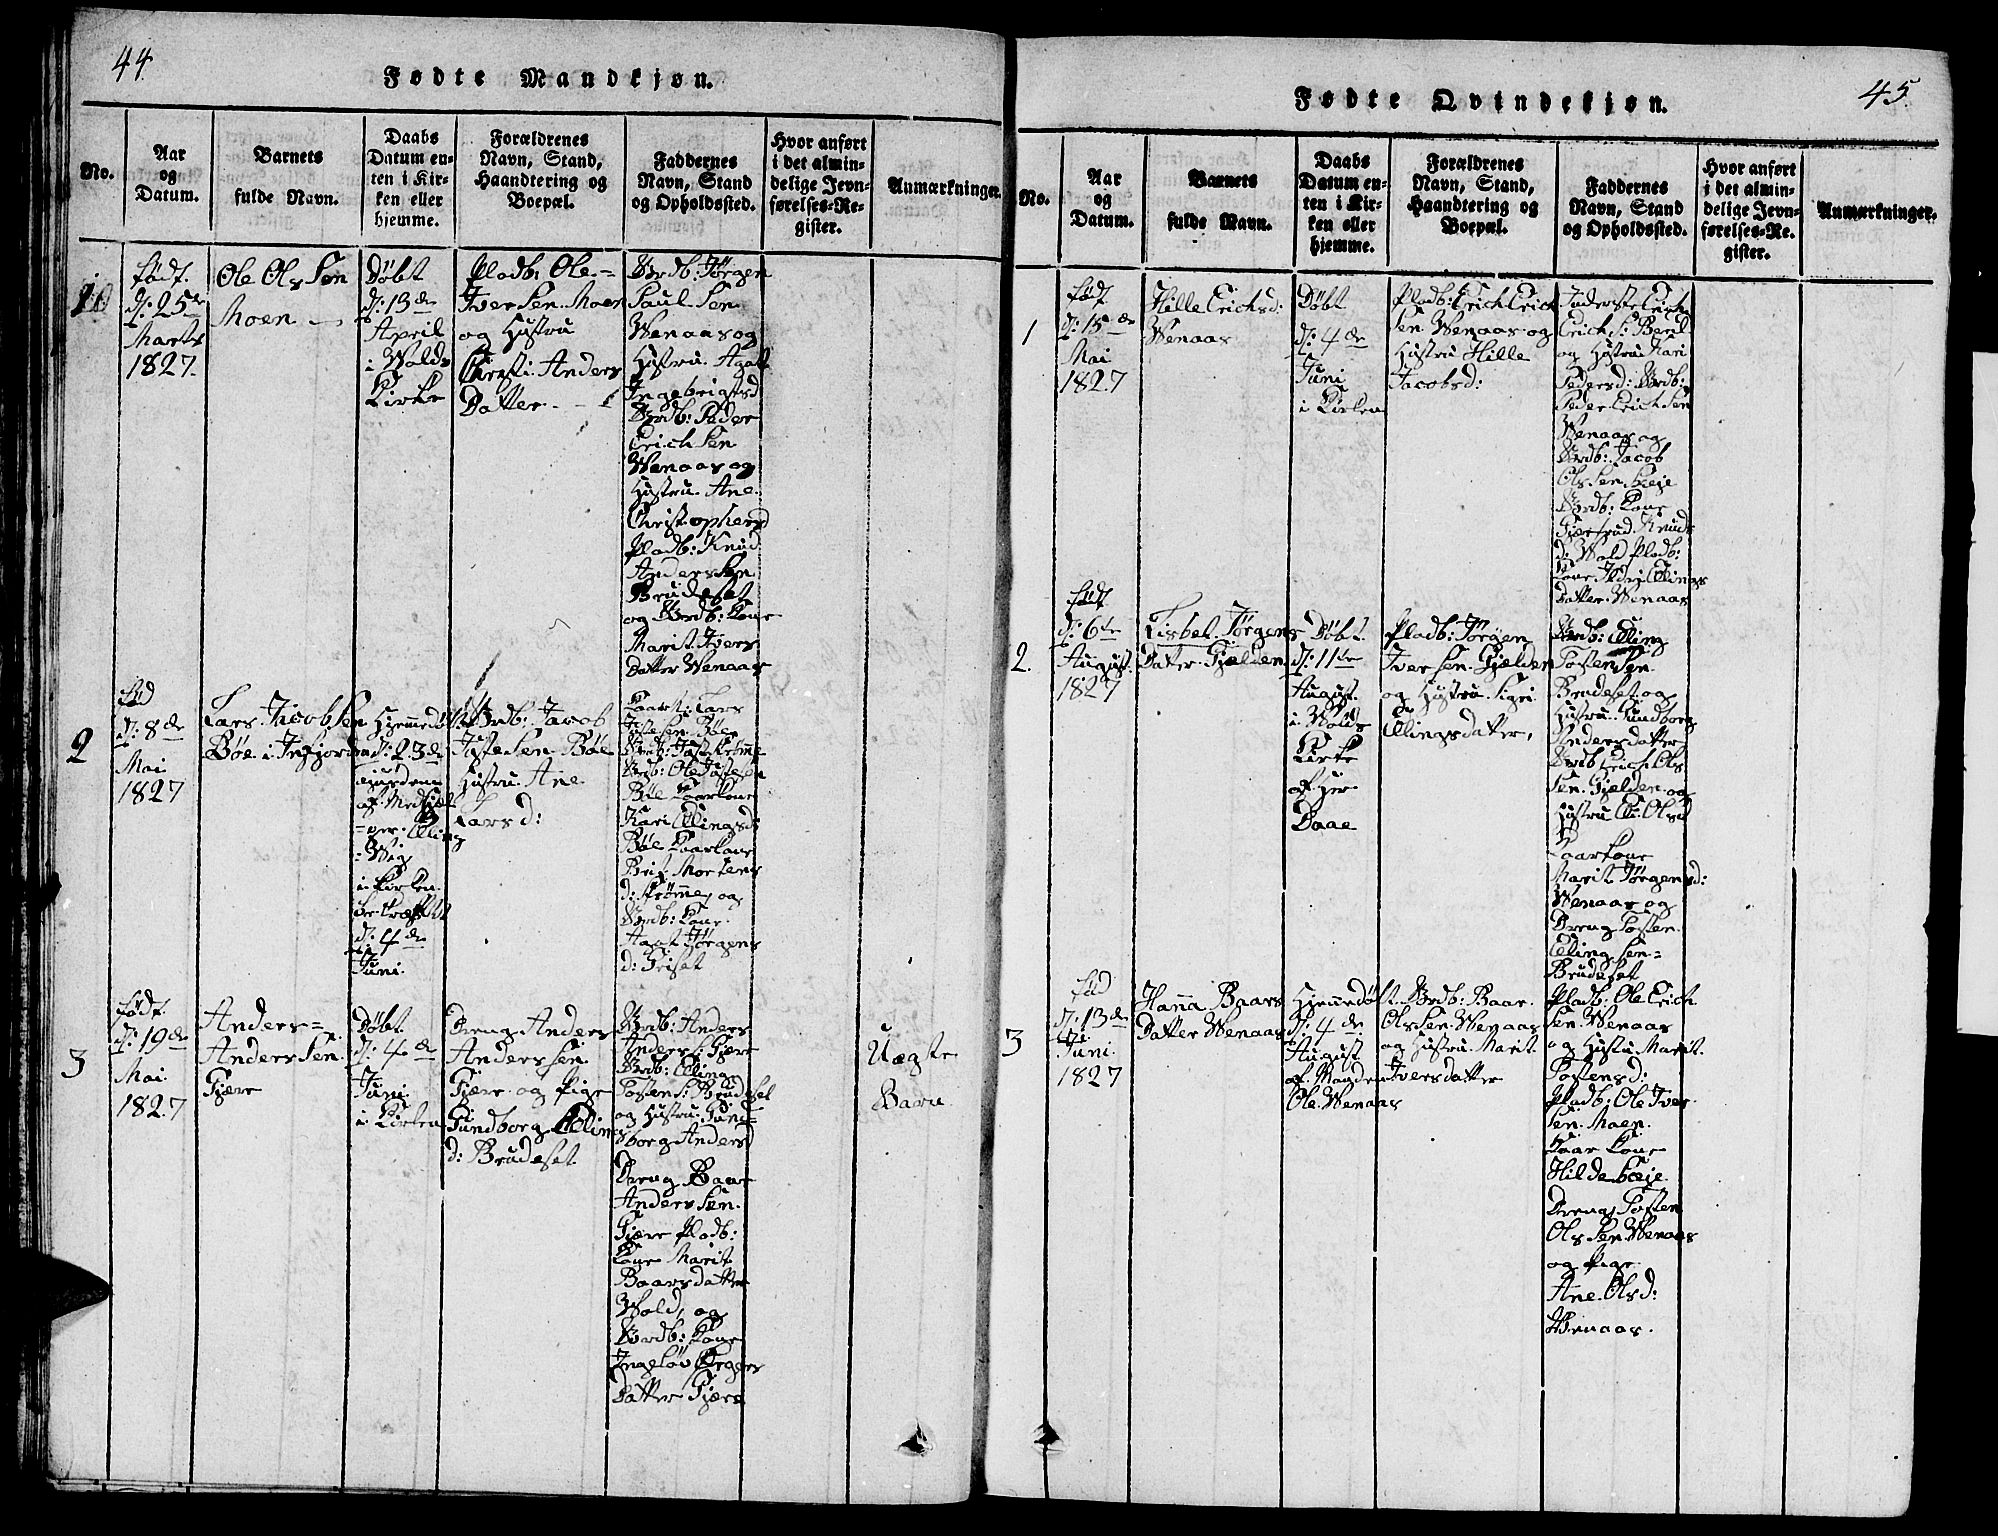 44
Fødte Mandkjøn.
No.
Aar
og
Datum.
Barnets
fulde Navn.
Daabs
Datum en-
ten i Kir-
ken eller
hjemme.
Forældrenes
Navn, Stand,
Haandtering og
Boepæl.
Faddernes
Navn, Stand
og Opholdssted.
Hvor anført
i det almin-
delige Jevn-
førelses-Re-
gister.
Anmærkninger.
født
d: 25de
Marts
1827.
Ole Ols Søn
Moen
Døbt
d: 13de
April
i Wolds
Kirke
Pladb: Ole
Iver Sen. Moen
og Hustru
Christi. Anders
Datter
Brdb: Jørgen
Paul Sen
Wenaas og
Hustru Agat
Ingebrigtsd
Brdb: Peder
Erich Sen
Wenaas og
Hustru. Ane
Christophersd
Pladb: Knud
Anders Sen
Brudeset
og Brdb: Kone
Marit Ivers
Datter Wenaas
2
fød
d: 8de
Mai
1827
Lars Jacob Sen
Böe i Insfjorden
Hjemedøbt
d: 23de
af Medhjel
=per. Elling
Wiig
i Kirken
d: 4de
Juni
Brdb: Jacob
Böe
Hustru Ane
Lars d:
Lars
Böe
Brdb: Ole
Böe Kaarkone
Kari Ellingsd:
Böe Kaarkone
Brit Mortens
d: og
Brdb: Kone
Agat Jørgens
d:
3
født
d: 19de
Mai
1827
Anders=
Anders Sen
Gjære
Døbt
d: 4de
Juni
i Kirken
Dreng Anders
Anders Sen
Gjære og Pige
Gundborg Elling
d: Brudeset
Brdb: Anders
Anders S: Gjære
Brdb: Elling
Tosten S: Brudeset
og Hustru. Gund=
borg Andersd
Dreng Baar
Anders Sen
Gjære Pladb:
Kone Marit
Baarsdatter
Wold, og
Brdb: Kone
Datter Gjære
Uægte
Barn
45
Fødte Qvindekjøn.
No.
Aar
og
Datum.
Barnets
fulde Navn.
Daabs
Datum en-
ten i Kir-
ken eller
hjemme.
Forældrenes
Navn, Stand,
Haandtering og
Boepæl.
Faddernes
Navn, Stand
og Opholdssted.
Hvor anført
i det almin-
delige Jevn-
førelses-Re-
gister.
Anmærkninger.
1
født
d: 15de
Mai
1827
Hille Erichsd:
Wenaas
Døbt
d: 4de
Juni
i Kirken
Pladb: Erich Erich
Sen. Wenaas og
Hustru Hille
Jacobsd:
Inderste Erich
Erich S:
og Hustru Kari
Pedersd: Brdb:
Peder Erich Sen
Wenaas og
Brdb: Jacob
Ols Sen
Brdb: Kone
Knuds
d: Wold Pladb:
Kone Ellings
Datter. Wenaas
2.
født
d: 6te
August.
1827
Lisbet. Jørgens
Datter. Gjelden
Døbt
d: 11te
August
i Wolds
Kirke
af Her
Daae
Pladb: Jørgen
Iver Sen. Gjelden
og Hustru. Sigri
Ellingsdatter,
Brdb: Elling
Tosten Sen
Brudeset og
Hustru. Gundborg
Andersdatter
Brdb Erich Ols
Sen. Gjelden og
Hustru Olsd
Kaarkone
Marit Jørgensd:
Wenaas og
Dreng Tosten
Elling Sen=
Brudeset
3
fød
d: 13de
Juni
1827
Hanna Baars
Datter Wenaas
Hjemmedøbt
d: 4de
August
af Manden
Ole. Wenaas
Brdb: Baar
Ols Sen. Wenaas
og Hustru. Marit
Iversdatter
Pladb: Ole Erich
Sen. Wenaas
og Hustru Marit
Tostensd:
Pladb: Ole Iver
Sen. Moen
Kaar Kone
Hilde
Dreng Tosten
Ols Sen. Wenaas
og Pige
Ane. Olsd:
Wenaas.